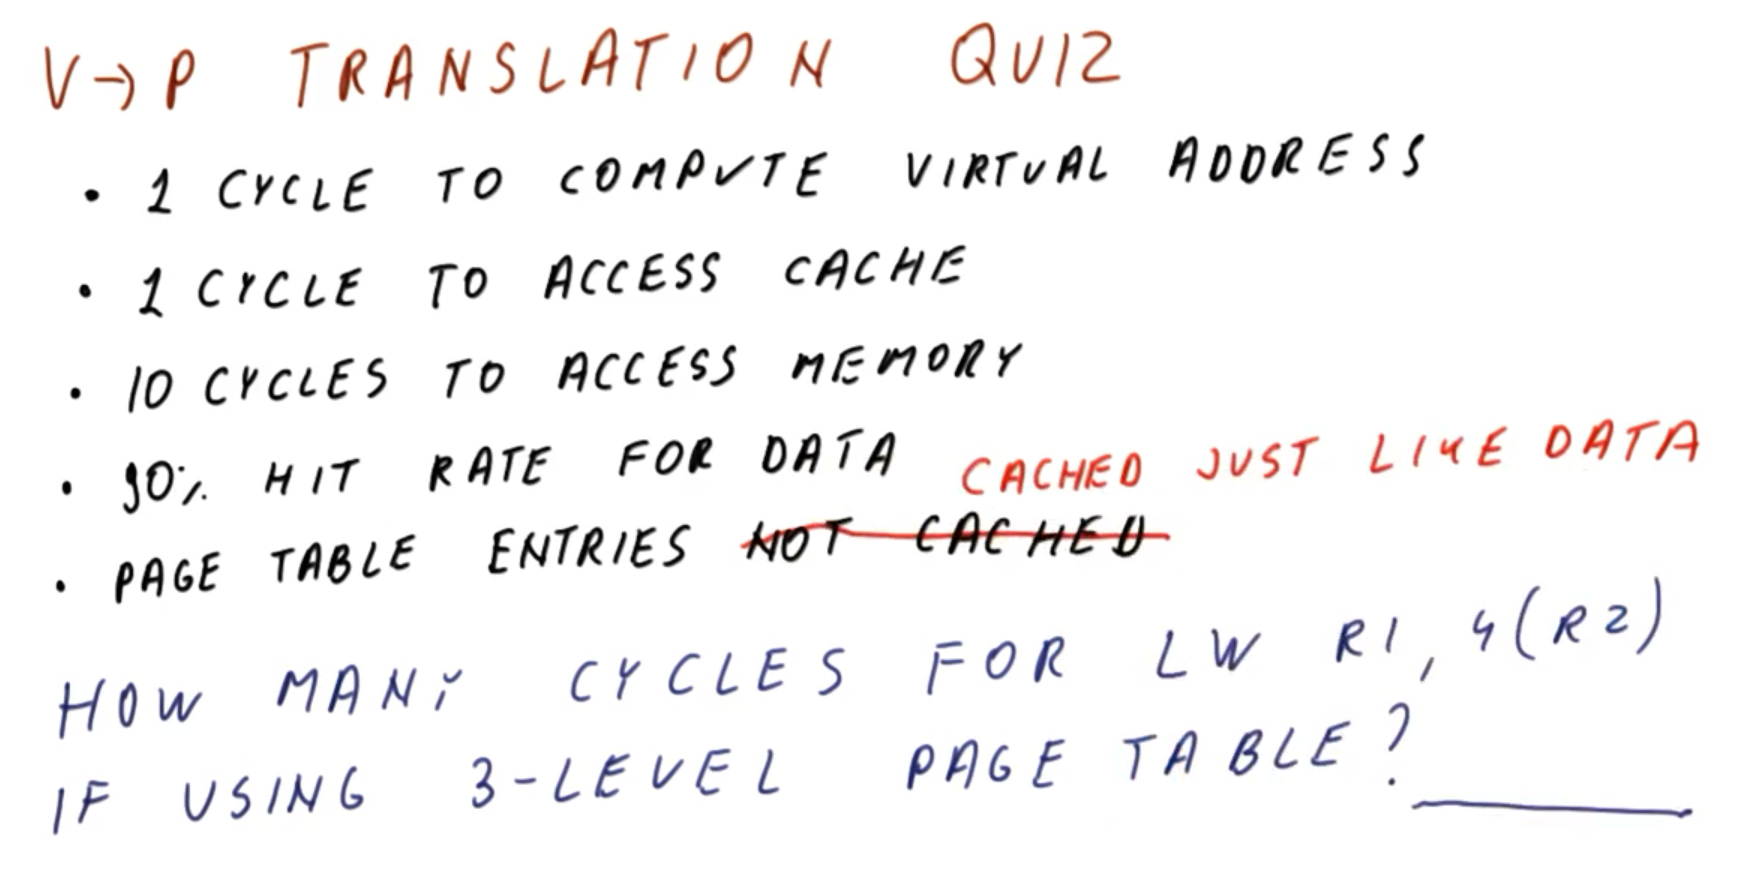 V→P TRANSLATION QUIZ
• 1 CYCLE TO COMPUTE VIRTUAL ADDRESS
• 1 CYCLE TO ACCESS CACHE
• 10 CYCLES TO ACCESS MEMORY
• 90% HIT RATE FOR DATA
CACHED JUST LIKE DATA
• PAGE TABLE ENTRIES NOT CACHED
HOW MANY CYCLES FOR LW R1, 4(R2)
IF USING 3-LEVEL PAGE TABLE? ______